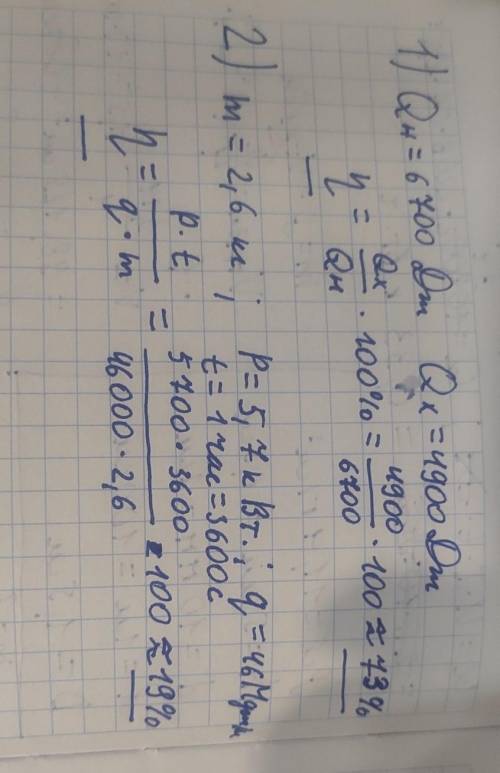 1) Qн = 6700 Дж Qх = 4900 Дж
η = Qх / Qн · 100% = 4900 / 6700 · 100 ≈ 73%
2) m = 2,6 кг ; p = 5,7 кВт. ; q = 46 Мдж/к
t = 1 час = 3600с
η = p·t / q·m = 5700·3600 / 46000·2,6 · 100 ≈ 19%